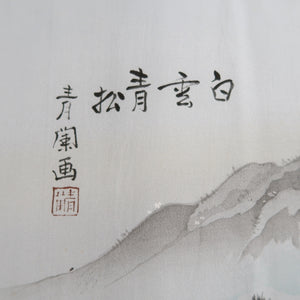 白雲青松
青蘭画